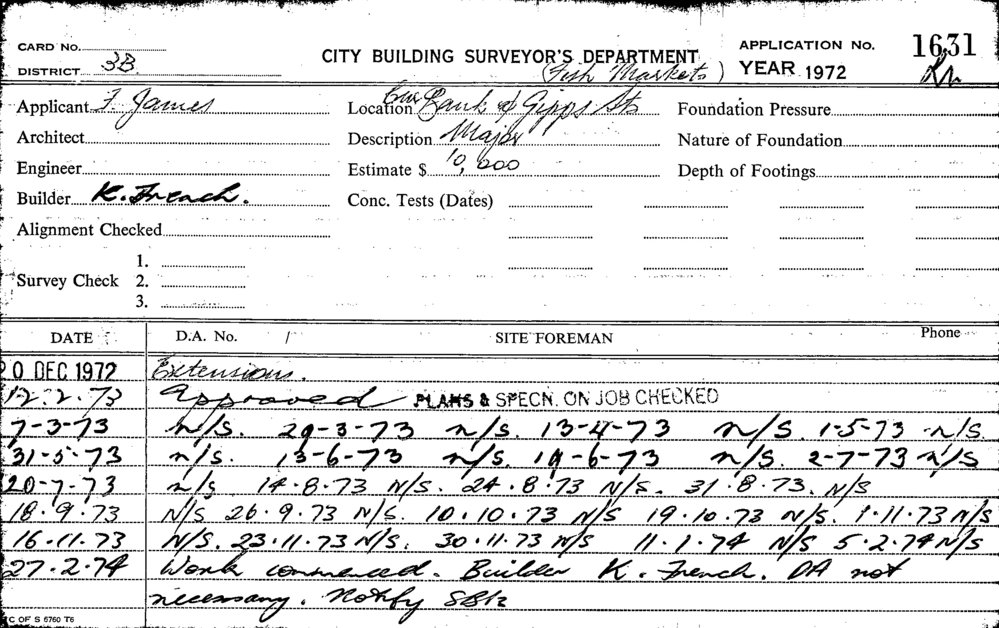 CARD NO.
DISTRICT 3B
CITY BUILDING SURVEYOR'S DEPARTMENT
(Fish Markets)
APPLICATION No. 1631
YEAR 1972
Applicant F. James
Location Cnr Bank & Gipps Sts
Foundation Pressure
Architect
Description Major
Nature of Foundation
Engineer
Estimate $ 10,000
Depth of Footings
Builder K. French.
Conc. Tests (Dates)
Alignment Checked
Survey Check 1.
2.
3.
DATE D.A. No. / SITE FOREMAN Phone
20 DEC 1972 Extensions.
12.2.73 Approved PLANS & SPECN. ON JOB CHECKED
7-3-73 n/s. 29-3-73 n/s. 13-4-73 n/s. 1-5-73 n/s.
31-5-73 n/s. 13-6-73 n/s. 19-6-73 n/s. 2-7-73 n/s
20-7-73 n/s 14.8.73 N/S. 24.8.73 N/S. 31.8.73. N/S
18.9.73 N/S 26.9.73 N/S. 10.10.73 N/S 19.10.73 N/S. 1.11.73 N/S
16.11.73 N/S. 23.11.73 N/S. 30.11.73 N/S 11.1.74 N/S 5.2.74 N/S
27.2.74 Work commenced. Builder K. French. DA not
necessary. Notify
C OF S 6760 T6